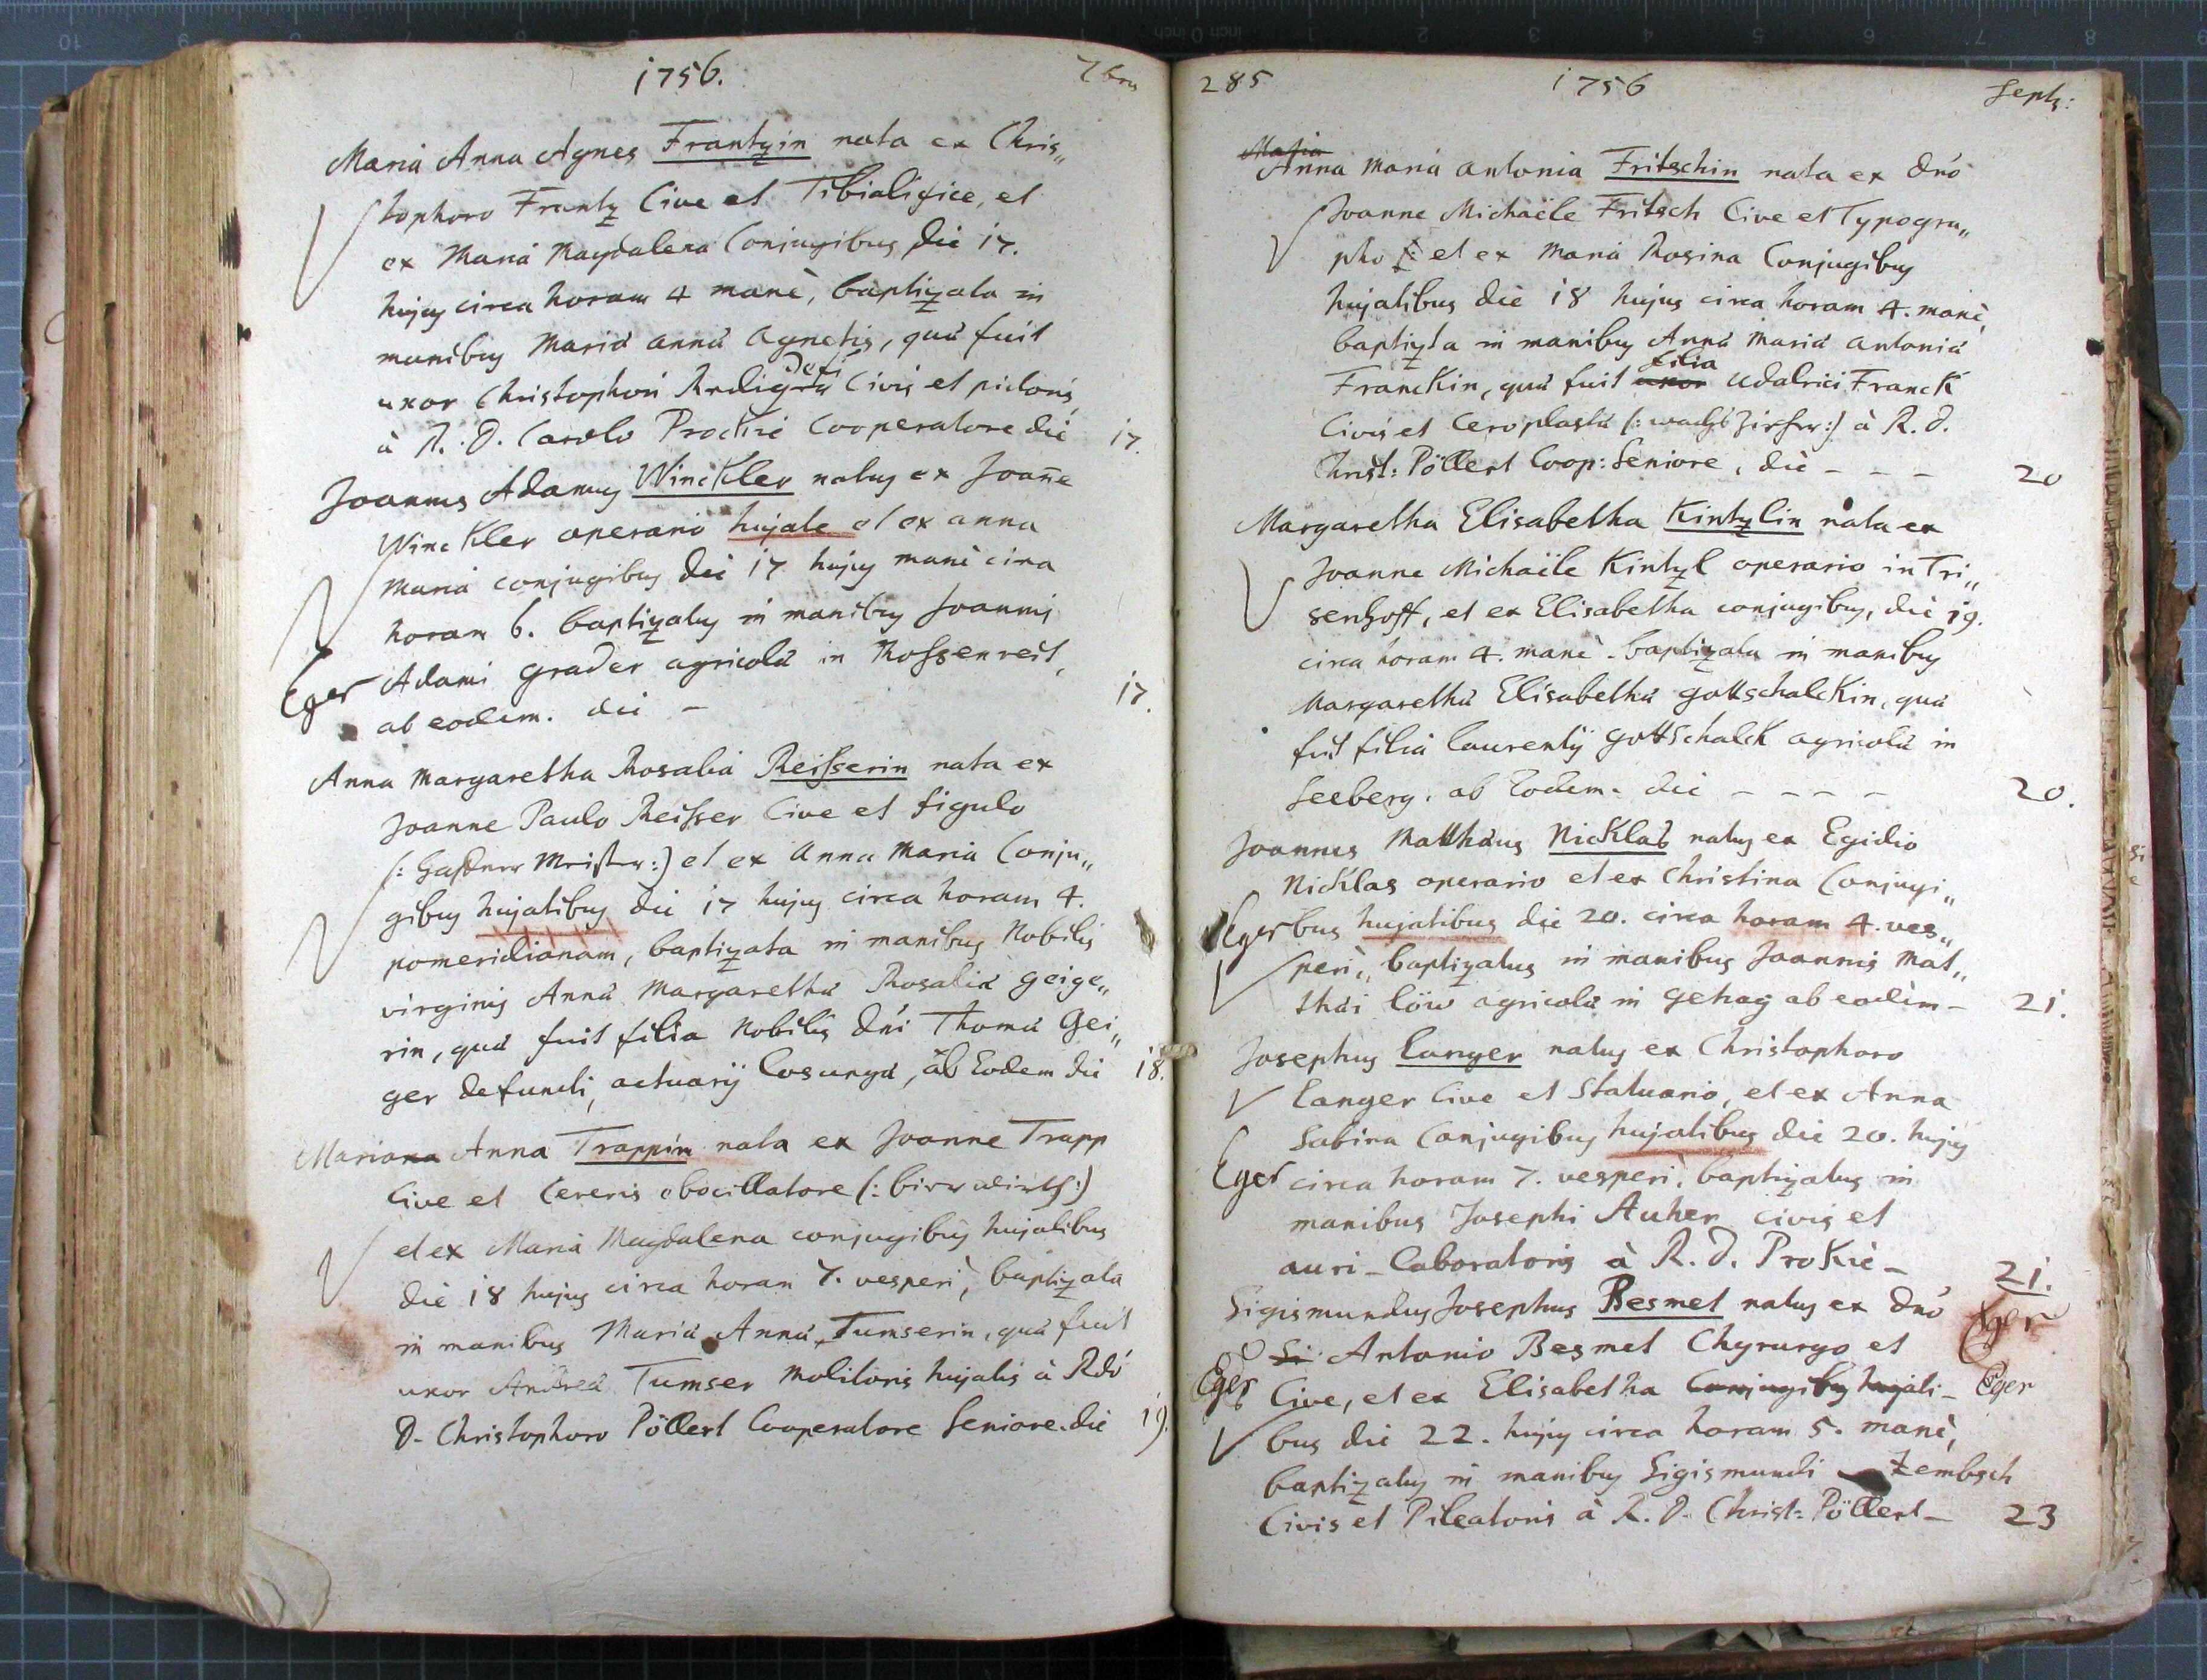 1756. 7bris
Maria Anna Agnes Frantzin nata ex Chris„
tophoro Frantz Cive et Tibialifice, et
ex Maria Magdalena Conjugibus die 17.
hujus circa horam 4 manè, baptizata in
manibus Mariæ Annæ Agnetis, quæ fuit
uxor Christophori Civis et pictoris,
à R. D. Carolo Prockie Cooperatore die 17.
Joannes Adamus Winckler natus ex Joañe
Winckler operario hujate et ex anna
Maria conjugibus die 17 hujus manè circa
horam 6. baptizatus in manibus Joannis
Eger Adami grader agricolæ in Rossenreit,
ab eodem. die - 17.
Anna Margaretha Rosalia Reisserin nata ex
Joanne Paulo Reisser Cive et figulo
(: Haffner Meister :) et ex Anna Maria Conju„
gibus hujatibus die 17 hujus circa horam 4.
pomeridianam, baptizata in manibus Nobilis
virginis Annæ Margarethæ Rosaliæ Geige„
rin, quæ fuit filia Nobilis Dni Thomæ Gei„
ger defuncti, actuarij Losungæ, ab Eodem die 18.
Mariana Anna Trappin nata ex Joanne Trapp
Cive et Cereris ebocillatore (: bier wirth :)
et ex Maria Magdalena conjugibus hujatibus
die 18 hujus circa horam 7. vesperi, baptizata
in manibus Mariæ Annæ Tumserin, quæ fuit
uxor Andreæ Tumser Molitoris hujatis à Rdo
D. Christophoro Pöllert Cooperatore Seniore. die 19.
285 1756 Septs:
Maria
Anna Maria Antonia Fritschin nata ex dno
Joanne Michaële Fritsch Cive et Typogra„
pho et ex Maria Rosina Conjugibus
hujatibus die 18 hujus circa horam 4. manè,
baptizta in manibus Annæ Mariæ Antoniæ
filia
Franckin, quæ fuit uxor Udalrici Franck
Civis et Ceroplastæ (: wachs :) à R. D.
Christ: Pöllert Coop: Seniore, die - - - 20
Margaretha Elisabetha Kintzlin nata ex
Joanne Michaële Kintzl operario in Tri„
senhoff, et ex Elisabetha conjugibus, die 19.
circa horam 4. manè. baptizata in manibus
Margarethæ Elisabethæ Gottschalckin, quæ
fuit filia Laurentij Gottschalck agricolæ in
Seeberg. ab Eodem. die - - - - 20.
Joannes Matthæus Nicklas natus ex Egidio
Nicklas operario et ex Christina Conjugi„
Eger bus hujatibus die 20. circa horam 4. ves„
peri, baptizatus in manibus Joannis Mat„
thæi Löw agricolæ in Gehag ab eodem - 21.
Josephus Langer natus ex Christophoro
Langer Cive et Statuario, et ex Anna
Sabina Conjugibus hujatibus die 20. hujus
Eger circa horam 7. vesperi, baptizatus in
manibus Josephi Auher civis et
auri-laboratoris à R. D. Prokie - 21.
Sigismundus Josephus Besmet natus ex dno Eger
Si Antonio Besmet Chyrurgo et
Eger Cive, et ex Elisabetha Conjugibus hujati- Eger
bus die 22. hujus circa horam 5. manè,
baptizatus in manibus Sigismundi Zembsch
Civis et Pileatoris à R. D. Christ: Pöllert - 23